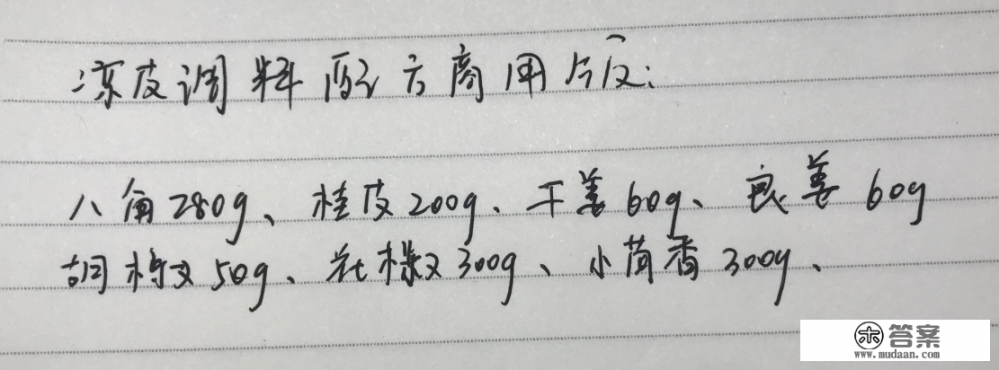 凉皮调料配方商用版:
八角280g、桂皮200g、干姜60g、良姜60g
胡椒50g、花椒300g、小茴香300g、
答案
www.mudaan.com